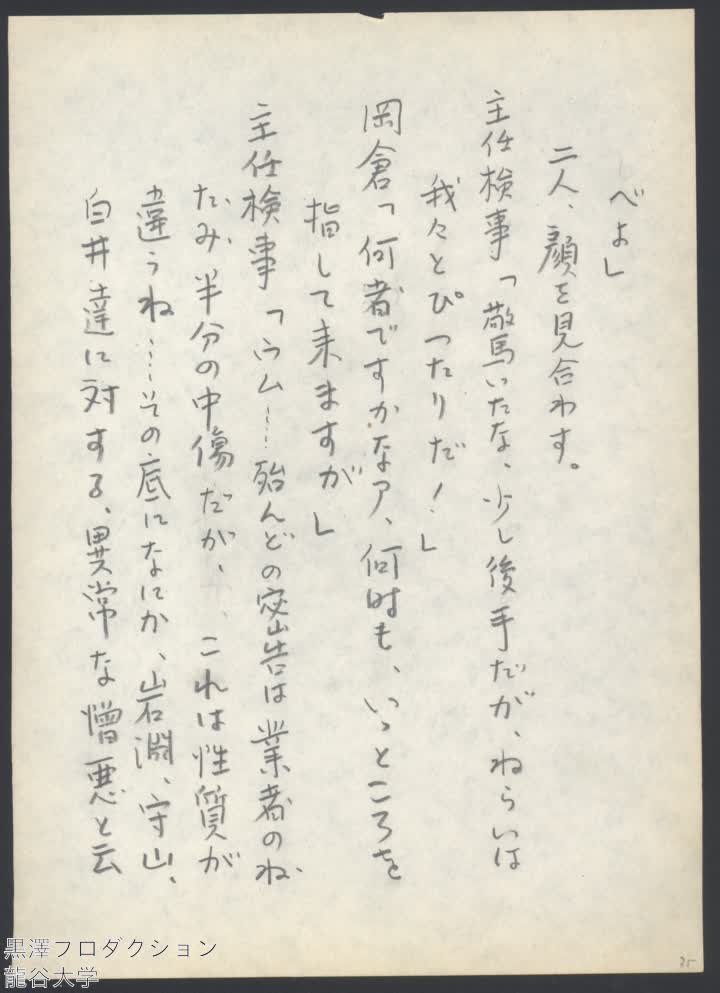 べよ」
二人、顔を見合わす。
主任検事「驚いたな、少し後手だが、ねらいは
我々とぴったりだ！」
岡倉「何者ですかなア、何時も、いっところを
指して来ますが」
主任検事「ウム……殆んどの密告は業者のね
たみ半分の中傷だが、、これは性質が
違うね……その底になにか、岩淵、守山、
白井達に対する、異常な憎悪と云
25
黒澤プロダクション
龍谷大学